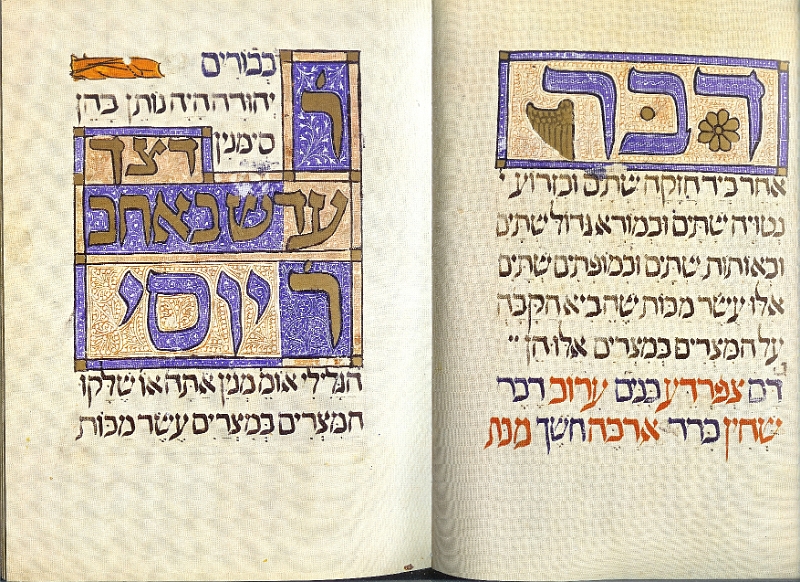 דבר
אחר ביד חזקה שתים ובזרוע
נטויה שתים ובמורא גדול שתים
ובאותות שתים ובמופתים שתים
אלו עשר מכות שהביא הקבה
על המצרים במצרים אלו הן
דם צפרדע כנים ערוב דבר
שחין ברד ארבה חשך מכת
בכורים
ר' יהודה היה נותן בהן
סימנין
דצך
עדש באחב
ר' יוסי
הגלילי אומ' מנין אתה או' שלקו
המצרים במצרים עשר מכות